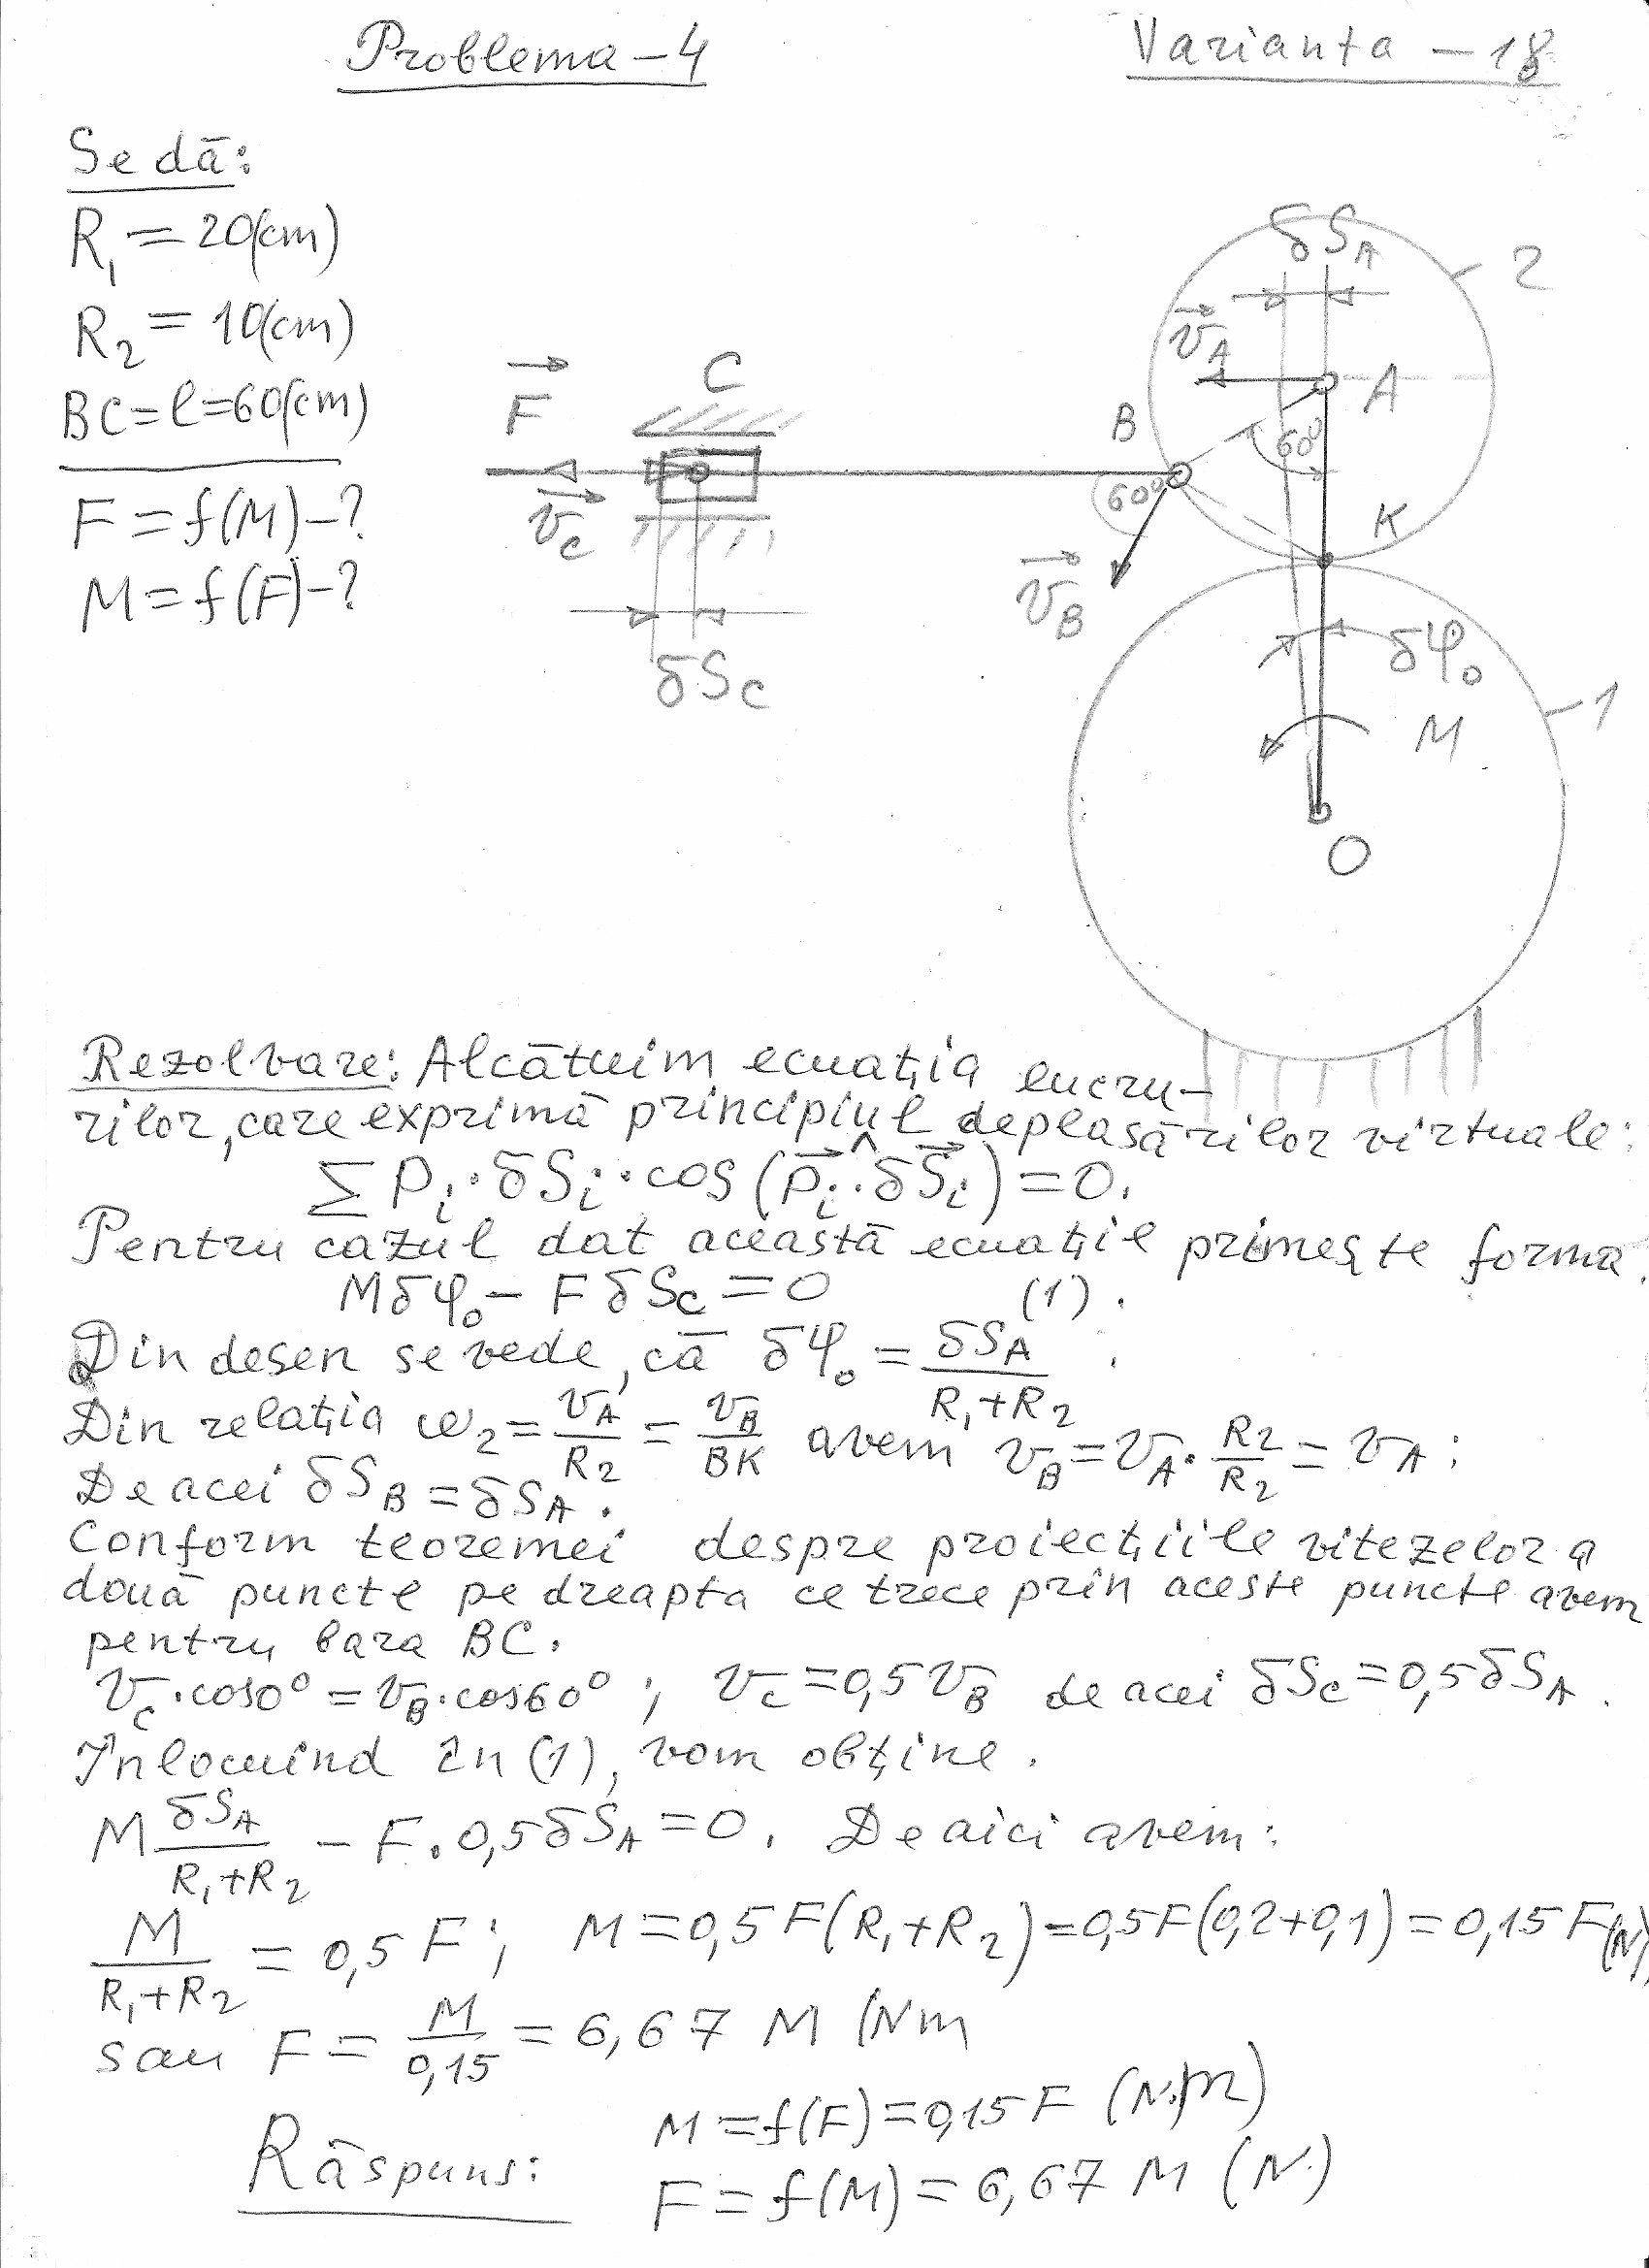 Problema – 4
Varianta – 18
Se dă:
R₁ = 20(cm)
R₂ = 10(cm)
BC = l = 60(cm)
F = f(M) – ?
M = f(F) – ?
δS_A
2
v_A
A
C
F
B
60°
60°
K
v_C
v_B
δφ₀
δS_C
1
M
O
Rezolvare: Alcătuim ecuația lucru-
rilor, care exprimă principiul deplasărilor virtuale:
∑ Pᵢ · δSᵢ · cos (P⃗ᵢ ^ · δS⃗ᵢ) = 0.
Pentru cazul dat această ecuație primește forma.
Mδφ₀ – F δS_C = 0 (1).
Din desen se vede, că δφ₀ = δS_A / (R₁+R₂).
Din relația ω₂ = v_A / R₂ = v_B / BK avem v_B = v_A · R₂ / R₂ = v_A ;
De acei δS_B = δS_A.
Conform teoremei despre proiecțiile vitezelor a
două puncte pe dreapta ce trece prin aceste puncte avem
pentru bara BC.
v_C · cos0° = v_B · cos60° ; v_C = 0,5 v_B de acei δS_C = 0,5 δS_A.
Înlocuind în (1), vom obține.
M δS_A / (R₁+R₂) – F · 0,5 δS_A = 0. De aici avem:
M / (R₁+R₂) = 0,5 F ; M = 0,5 F (R₁+R₂) = 0,5F(0,2+0,1) = 0,15 F(N)
sau F = M / 0,15 = 6,67 M (Nm
M = f(F) = 0,15 F (N·m)
Răspuns:
F = f(M) = 6,67 M (N.)